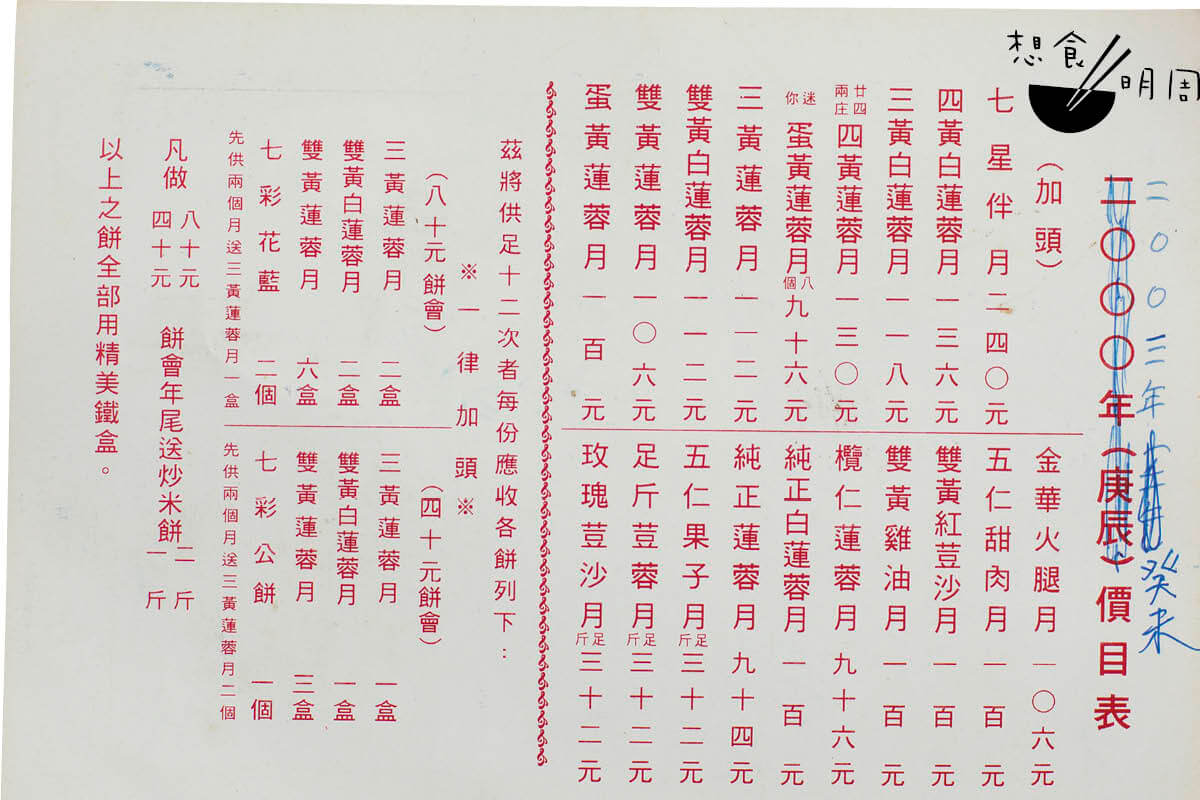 想食明周
二〇〇三年 癸未
二〇〇〇年(庚辰)價目表
(加頭)
七星伴月二四〇元
四黃白蓮蓉月一三六元
三黃白蓮蓉月一一八元
廿四兩庄四黃蓮蓉月一三〇元
迷你蛋黃蓮蓉月八個九十六元
三黃蓮蓉月一一二元
雙黃白蓮蓉月一一二元
雙黃蓮蓉月一〇六元
蛋黃蓮蓉月一百元
金華火腿月一〇六元
五仁甜肉月一百元
雙黃紅荳沙月一百元
雙黃雞油月一百元
欖仁蓮蓉月九十六元
純正白蓮蓉月一百元
純正蓮蓉月九十四元
五仁果子月足斤三十二元
足斤荳蓉月足斤三十二元
玫瑰荳沙月足斤三十二元
茲將供足十二次者每份應收各餅列下:
※一律加頭※
(八十元餅會)
三黃蓮蓉月 二盒
雙黃白蓮蓉月 二盒
雙黃蓮蓉月 六盒
七彩花藍 二個
先供兩個月送三黃蓮蓉月一盒
(四十元餅會)
三黃蓮蓉月 一盒
雙黃白蓮蓉月 一盒
雙黃蓮蓉月 三盒
七彩公餅 一個
先供兩個月送三黃蓮蓉月二個
凡做 八十元 四十元 餅會年尾送炒米餅 二斤 一斤
以上之餅全部用精美鐵盒。